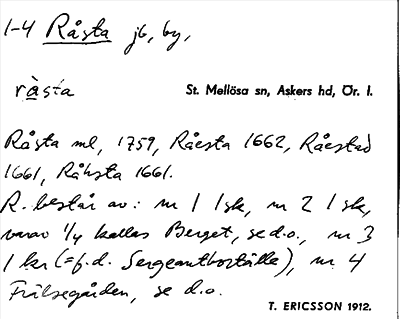 1-4 Råsta jb, by,
ràsta St. Mellösa sn, Askers hd, Ör. l.
Råsta ml, 1759, Råesta 1662, Råestad
1661, Råhsta 1661.
R. består av: nr 1 1 sk, nr 2 1 sk,
varav 1/4 kallas Berget, se d.o., nr 3
1 kr (= f.d. Sergeantboställe), nr 4
Frälsegården, se d.o.
T. ERICSSON 1912.